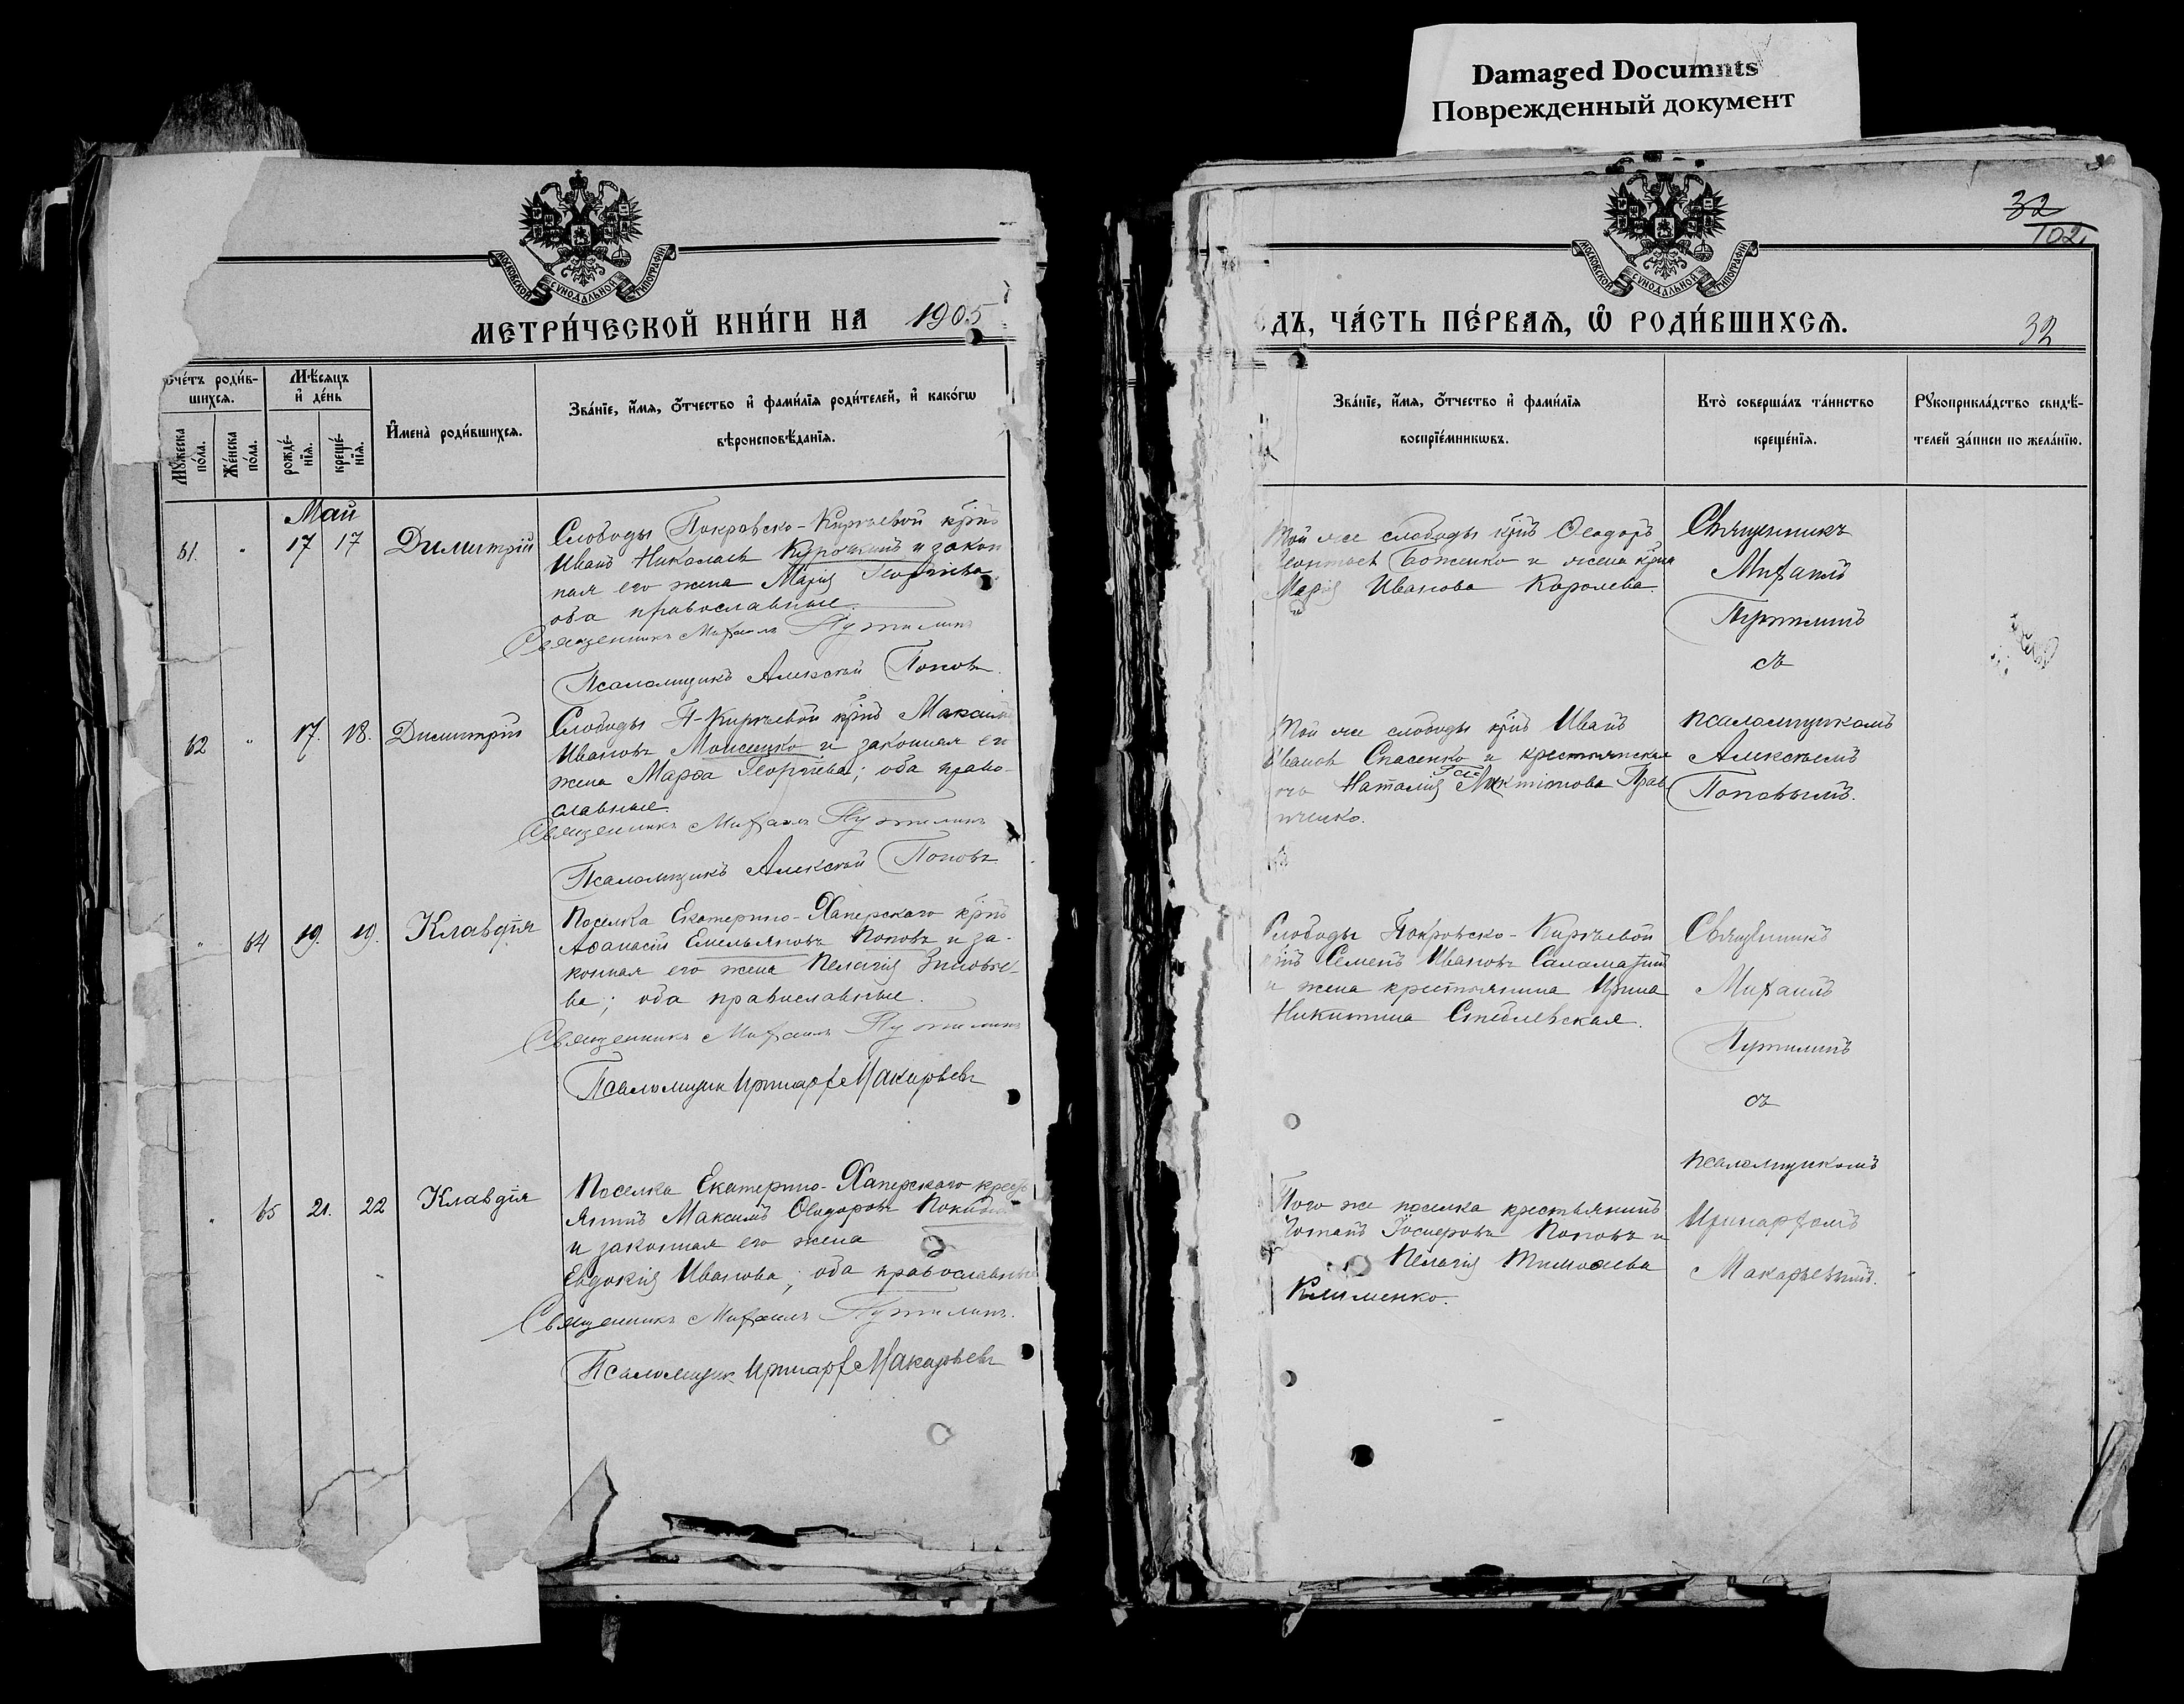 Damaged Documnts
Поврежденный документ
МОСКОВСКОЙ СѴНОДАЛЬНОЙ ТИПОГРАФІИ
МЕТРИ́ЧЕСКОЙ КНИ́ГИ НА 1905
Счéтъ роди́в-
шихся.
Мѣ́сяцъ
и҆ де́нь
Мꙋ́жеска по́ла.
Же́нска по́ла.
рожде́-
нїя.
креще́-
нїя.
И҆мена̀ роди́вшихся.
Зва́нїе, и҆́мя, ѻ҆́тчество и҆ фами́лїя роди́телей, и҆ како́гѡ
вѣроисповѣ́данїя.
Май
61. " 17 17 Димитрій
Слободы Покровско-Киреевой крнъ
Иванъ Николаевъ и закон
ная его жена Марія Георгіева
оба православные.
Священникъ Михаилъ Путилинъ
Псаломщикъ Алексѣй Поповъ.
62 " 17. 18. Димитрій
Слободы П-Киреевой крнъ Максимъ
Ивановъ Моисенко и законная его
жена Марѳа Георгіева; оба право-
славные
Священникъ Михаилъ Путилинъ
Псаломщикъ Алексѣй Поповъ
" 64 19. 19. Клавдія
Поселка Екатерино-Хаперскаго крнъ
Аѳанасій Емельяновъ Поповъ и за-
конная его жена Пелагія Зиновье-
ва; оба православные.
Священникъ Михаилъ Путилинъ
Псаломщик Иринарх Макарьевъ
" 65 21. 22 Клавдія
Поселка Екатерино-Хаперскаго кресть
янинъ Максимъ Ѳедоровъ
и законная его жена
Евдокія Иванова; оба православные
Священникъ Михаилъ Путилинъ.
Псаломщик Иринарх Макарьевъ
32
102.
МОСКОВСКОЙ СѴНОДАЛЬНОЙ ТИПОГРАФІИ
ДЪ, ЧА́СТЬ ПЕ́РВАЯ, Ѽ РОДИ́ВШИХСЯ.
32
Зва́нїе, и҆́мя, ѻ҆́тчество и҆ фами́лїя
воспрїе́мникѡвъ.
Кто̀ соверша́лъ та́инство
креще́нїя.
Рꙋкоприкла́дство свидѣ́-
телей за́писи по жела́нїю.
Той же слободы крнъ Ѳеодоръ
Леонтьевъ Боженко и жена крна
Марія Иванова Королева.
Священникъ
Михаилъ
Путилинъ
съ
псаломщикомъ
Алексѣемъ
Поповымъ.
Той же слободы крнъ Иванъ
Ивановъ Спасенко и крестьянская
Наталія
Слободы Покровско-Киреевой
крнъ Семенъ Ивановъ Саламатинъ
и жена крестьянина Ирина
Никитина Стеблевская.
Священникъ
Михаилъ
Путилинъ
съ
псаломщикомъ
Иринархомъ
Макарьевымъ.
Того же поселка крестьянинъ
Поповъ и
Пелагія Тимоѳеева
Клименко.